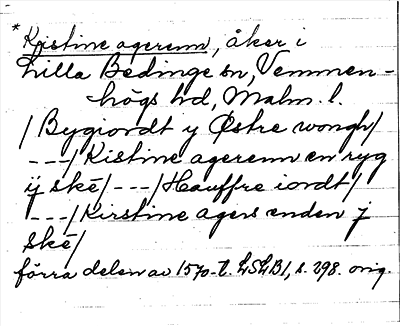 *Kristine agerenn, åker i
Lilla Bedinge sn, Vemmen-
högs hd, Malm. l.
/Bygiordt y Østre wongh/
---/Kistine agerenn en ryg
ÿ ske/---/Hauffre iordt/
---/Kirstine agers enden j
ske/
förra delen av 1570-t. LSLB1, s. 298. orig.